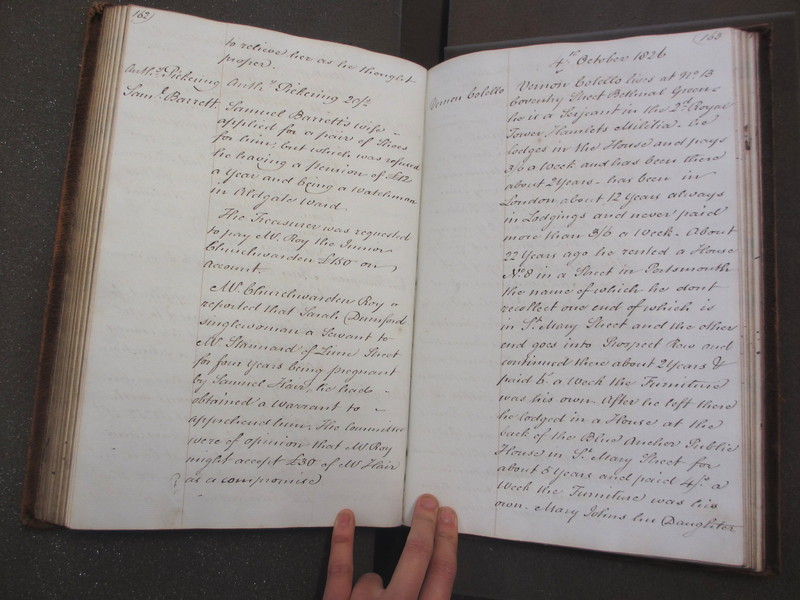 162
to relieve her as he thought
proper.
Anthy. Pickering Anthy. Pickering 20/-
Saml. Barrett Samuel Barrett's wife
applied for a pair of Shoes
for him, but which was refused
he having a pension of £12
a Year and being a Watchman
in Aldgate Ward
The Treasurer was requested
to pay Mr. Roy the Junior
Churchwarden £150 on
account.
Mr. Churchwarden Roy
reported that Sarah Dumford
Singlewoman a Servant to
Mr. Stannard of Lime Street
for four Years being pregnant
by Samuel Hair, he had
obtained a Warrant to
apprehend him. The Committee
were of opinion that Mr. Roy
might accept £30 of Mr. Hair
as a compromise
163
4th October 1826
Vernon Colello Vernon Colello lives at No. 13
Coventry Street Bethnal Green
he is a Serjeant in the 2d. Royal
Tower Hamlets Militia. he
lodges in the House and pays
3/6 a Week and has been there
about 2 Years. has been in
London about 12 Years always
in Lodgings and never paid
more than 3/6 a Week. About
22 Years ago he rented a House
No. 8 in a Street in Portsmouth
the name of which he dont
recollect one end of which is
in St. Mary Street and the other
end goes into Prospect Row and
continued there about 2 Years &
paid a Week the Furniture
was his own. After he left there
he lodged in a House at the
back of the Blue Anchor Public
House in St. Mary Street for
about 5 Years and paid 4/. a
Week the Furniture was his
own. Mary Johns her Daughter